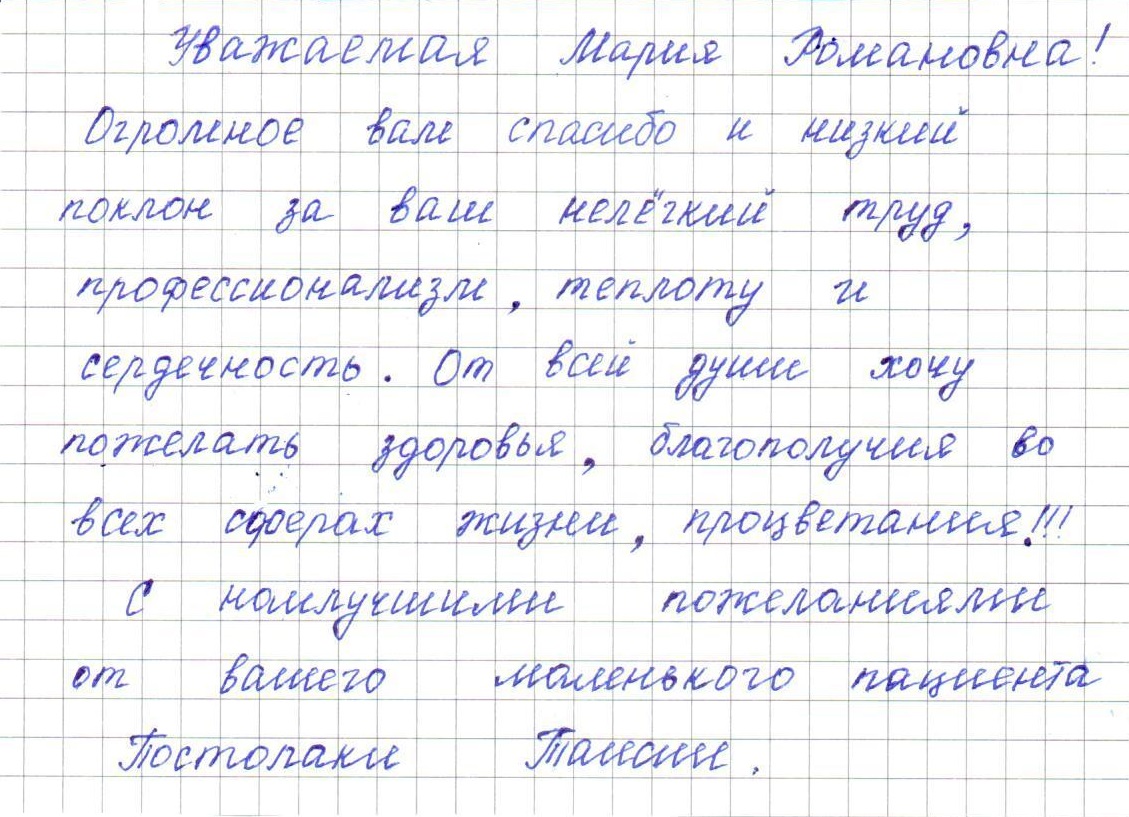 Уважаемая Мария Романовна!
Огромное вам спасибо и низкий
поклон за ваш нелёгкий труд,
профессионализм, теплоту и
сердечность. От всей души хочу
пожелать здоровья, благополучия во
всех сферах жизни, процветания!!!
С наилучшими пожеланиями
от вашего маленького пациента
Постолаки Таисии.